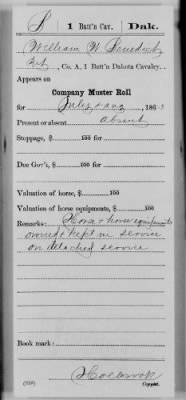 B | 1 Batt'n Cav. | Dak.
William W. Benedict
Pvt, Co. A, 1 Batt'n Dakota Cavalry.
Appears on
Company Muster Roll
for July & Aug, 1863
Present or absent Absent
Stoppage, $ 100 for
Due Gov't, $ 100 for
Valuation of horse, $ 100
Valuation of horse equipments, $ 100
Remarks: Horse & horse equipments
owned & kept in service
on detached service
Book mark:
(358)
Copyist.